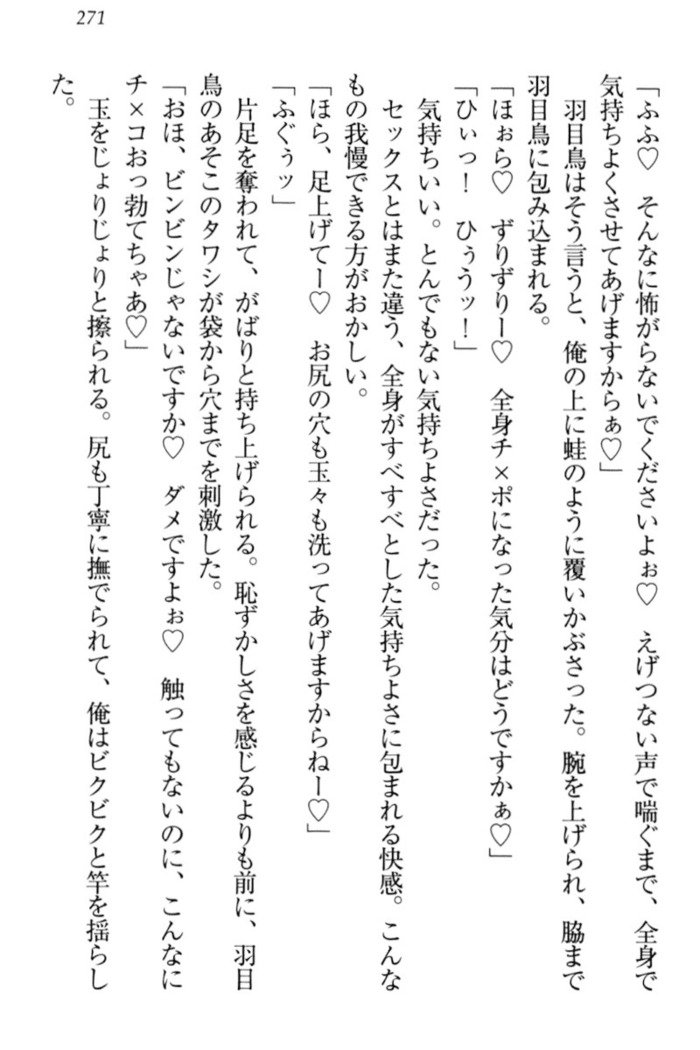 271
「ふふ♡　そんなに怖がらないでくださいよぉ♡　えげつない声で喘ぐまで、全身で
気持ちよくさせてあげますからぁ♡」
　羽目鳥はそう言うと、俺の上に蛙のように覆いかぶさった。腕を上げられ、脇まで
羽目鳥に包み込まれる。
「ほぉら♡　ずりずりー♡　全身チ×ポになった気分はどうですかぁ♡」
「ひぃっ！　ひぅうッ！」
　気持ちいい。とんでもない気持ちよさだった。
　セックスとはまた違う、全身がすべすべとした気持ちよさに包まれる快感。こんな
もの我慢できる方がおかしい。
「ほら、足上げてー♡　お尻の穴も玉々も洗ってあげますからねー♡」
「ふぐぅッ」
　片足を奪われて、がばりと持ち上げられる。恥ずかしさを感じるよりも前に、羽目
鳥のあそこのタワシが袋から穴までを刺激した。
「おほ、ビンビンじゃないですか♡　ダメですよぉ♡　触ってもないのに、こんなに
チ×コおっ勃てちゃあ♡」
　玉をじょりじょりと擦られる。尻も丁寧に撫でられて、俺はビクビクと竿を揺らし
た。